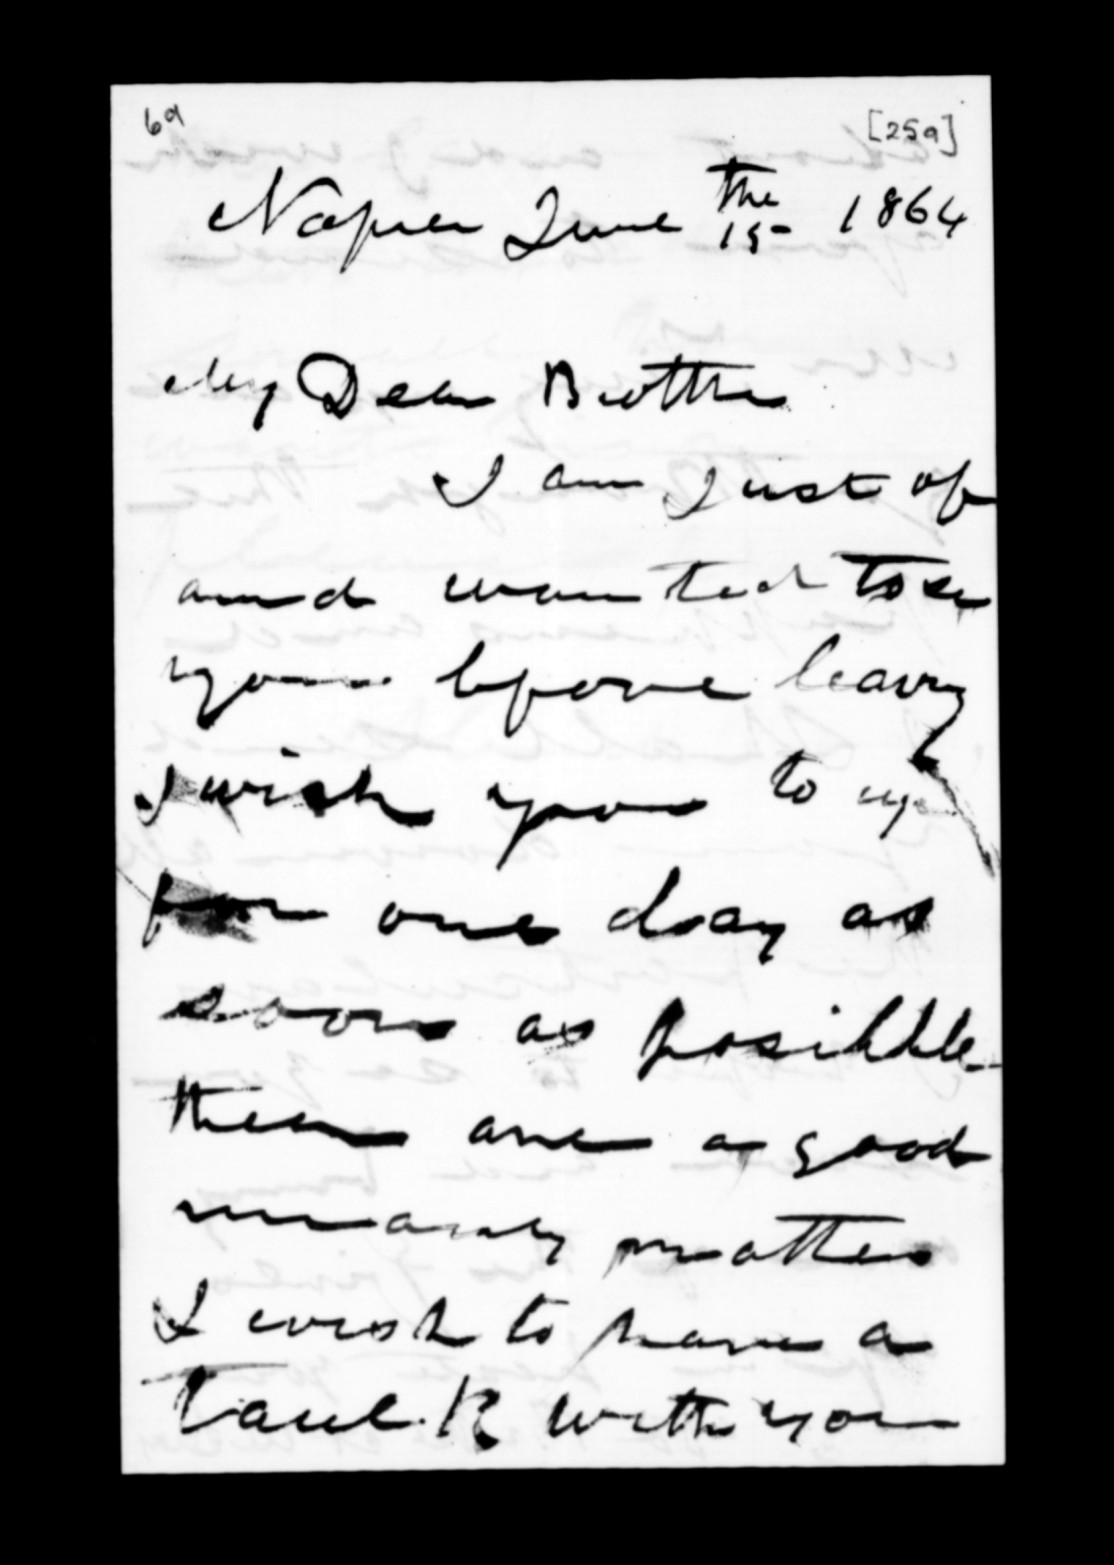 6a
[25a]
Napier June the 15- 1864
My Dear Brother
I am Just of
and wanted to se
you bfore leavg
I wish you to up
for one day as
soon as posibble
theer are a good
many matters
I wish to have a
Taulk with you